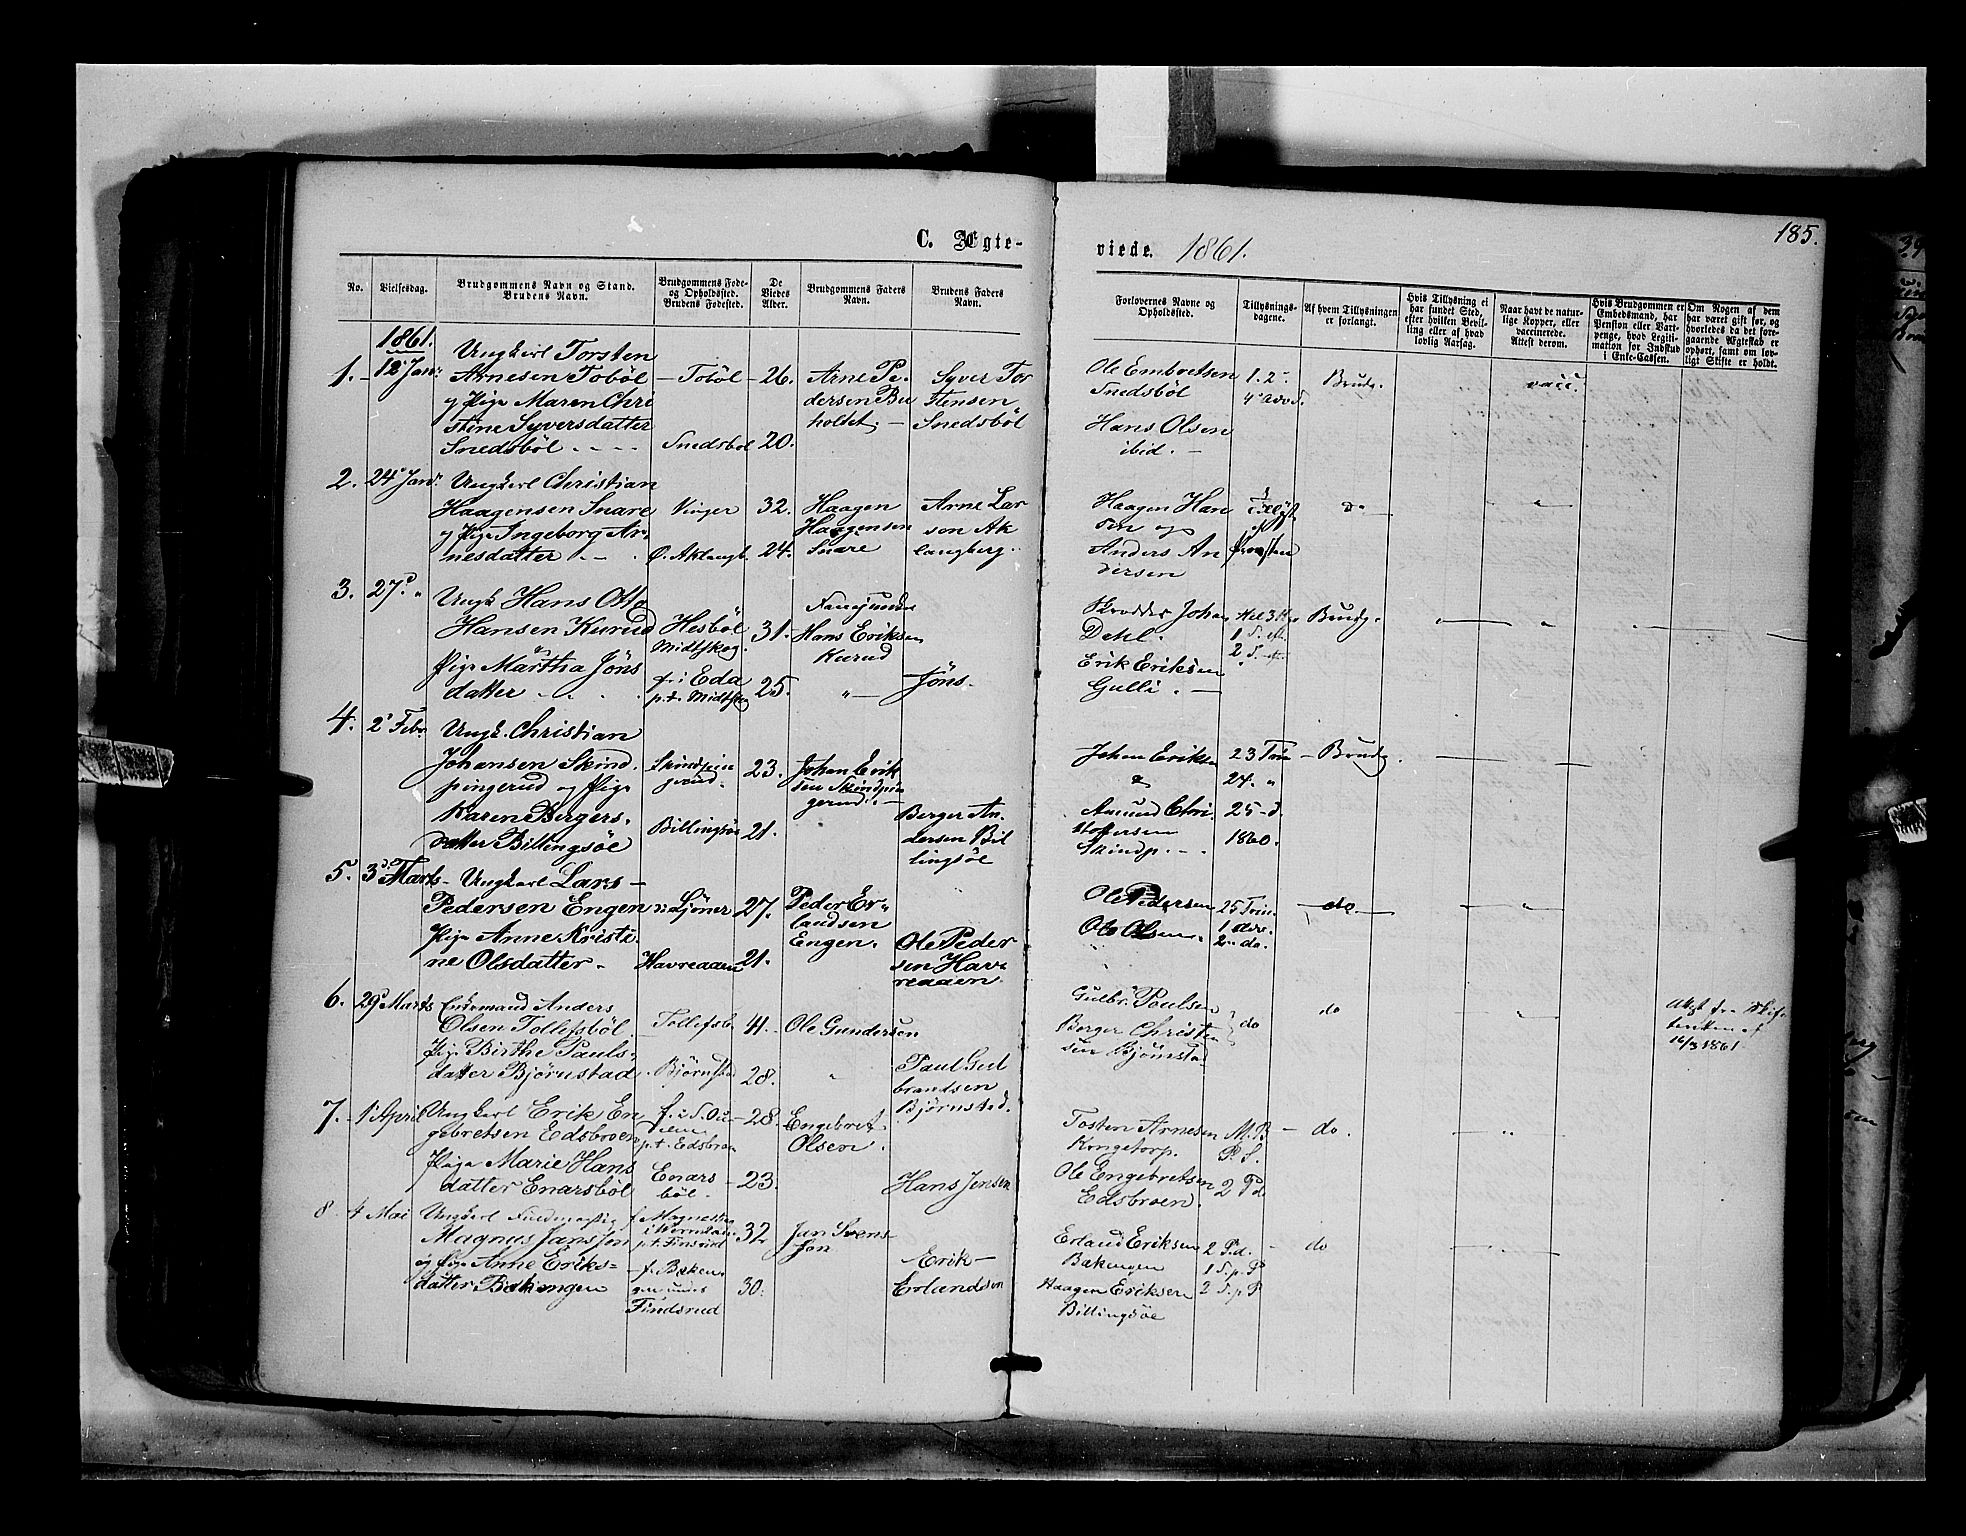 185.
C. Ægte-
viede. 1861.
No.
Vielsesdag.
Brudgommens Navn og Stand.
Brudens Navn.
Brudgommens Føde-
og Opholdssted.
Brudens Fødested.
De
Viedes
Alder.
Brudgommens Faders
Navn.
Brudens Faders
Navn.
Forlovernes Navne og
Opholdssted.
Tillysnings-
dagene.
Af hvem Tillysningen
er forlangt.
Hvis Tillysning ei
har fundet Sted,
efter hvilken Bevil-
ling eller af hvad
lovlig Aarsag.
Naar havt de natur-
lige Kopper, eller
vaccinerede.
Attest derom.
Hvis Brudgommen er
Embedsmand, har
Pension eller Vart-
penge, hvad Legiti-
mation for Indskud
i Enke-Cassen.
Om Nogen af dem
har været gift før, og
hvorledes da det fore-
gaaende Ægteskab er
ophørt, samt om lov-
ligt Skifte er holdt.
1861.
1. 12 Jan.
Ungkarl Torsten
Arnesen Toböl
og Pige Maren Chri
stine Syversdatter
Snedsböl
Toböl
Snedsböl
26.
20.
Arne Pe-
dersen Bu
holdet.
Syver Tor
stensen
Snedsböl
Ole Embretsen
Snedsböl
Hans Olsen
ibid.
1. 2.
4 Adv. S.
Brudg.
vacc.
2. 24 Jan.
Ungkarl Christian
Haagensen Snare
og Pige Ingeborg Ar-
nesdatter
Vinger
Ö. Aklangb.
32.
24.
Haagen
Haagensen
Snare
Arne Lar
sen Ak
langberg.
Haagen Han
sen og
Anders An
dersen
3. 27 "
Ungk Hans Otto
Hansen Kurud
Pige Märtha Jöns
datter
Hesböl
Midtskog.
f. i Eda
p.t. Midtskog
31.
25.
Hans Eriksen
Kurud
"
Jöns.
Skrædder Johan
Dehl.
Erik Eriksen
Gulli.
Brudg.
4. 2 Febr.
Ungk. Christian
Johansen Skind-
pingerud og Pige
Karen Bergers-
datter Billingsöe
Skindpin
gerud.
Billingsöe
23.
21.
Johan Erik
sen Skindpin
gerud.
Berger An-
dersen Bil
lingsöe
Johan Eriksen
&
Amund Chri
stophersen
Skindp.
23 Trin
24. "
25 - d.
1860.
Brudg.
5. 3 Marts
Ungkarl Lars
Pedersen Engen
Pige Anne Kristi-
ne Olsdatter
Havreaaen
27.
21.
Peder Er-
landsen
Engen.
Ole Peder
sen Hav-
reaaen
Ole Pedersen
Ole Olsen.
25 Trin.
1 Adv.
2 - do.
do
6. 29 Marts
Enkemand Anders
Olsen Tollefsböl
Pige Birthe Pauls-
datter Björnstad
Tollefsb.
Björnstad
41.
28.
Ole Gundersen
"
Paul Gul
brandsen
Björnstad.
Gulbr. Paulsen
Berger Christen
sen Björnstad
do
do
Attest fra Skif-
16/3 1861.
7. 1 April
Ungkarl Erik En
gebretsen Edsbroen
Pige Marie Hans
datter Enarsböl
p.t. Edsbroen
Enars
böl.
28.
23.
Engebret
Olsen.
Hans Jensen
Tosten Arnesen
Kongetorp.
Ole Engebretsen
Edsbroen.
M. B
P. S.
2 Pd.
do.
8 4 Mai
Ungkarl
Magnus Jansson
og Pige Anne Eriks-
datter Bakengen
p.t. Finsrud
f. Baken-
gen under
Findsrud
32
30.
Jan Svens
son
Erik
Erlandsen
Erland Eriksen
Bakengen
Haagen Eriksen
Billingsöe
2 P.d.
1 S. p. P
2 S. p. P
do